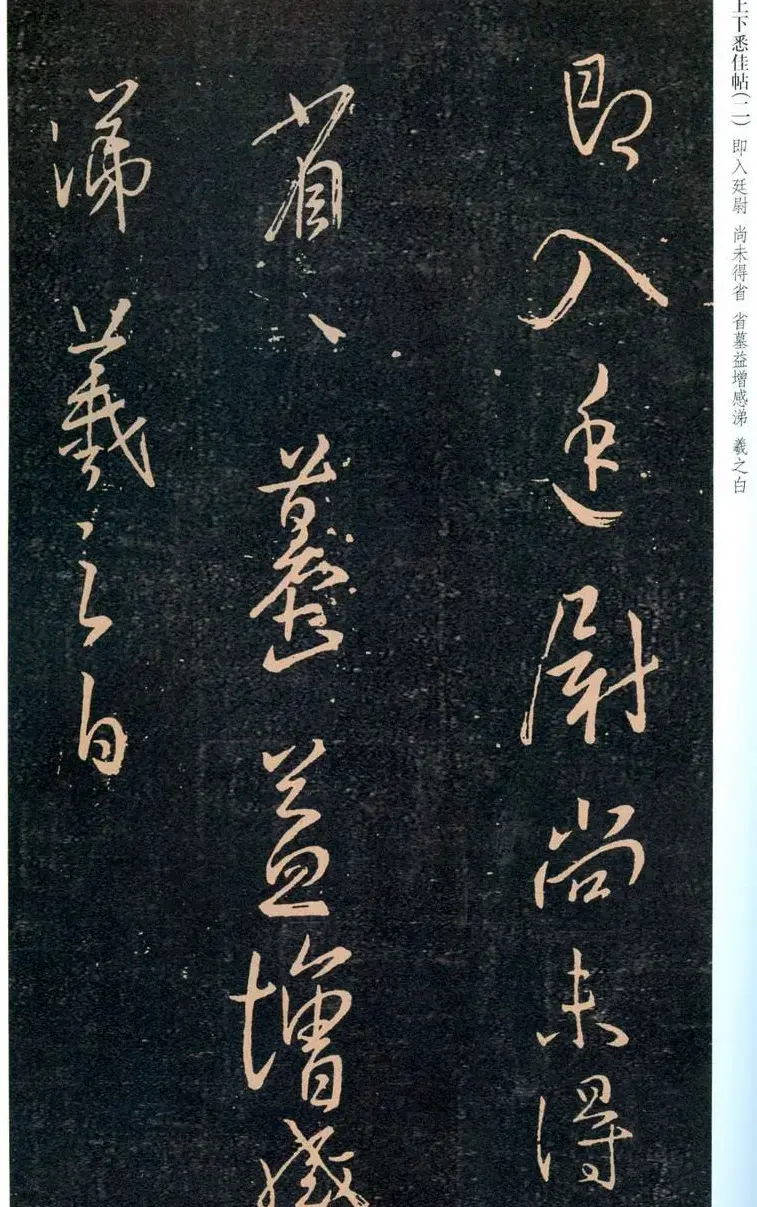 上下悉佳帖(二) 即入廷尉 尚未得省 省墓益增感涕 羲之白
即入廷尉尚未得
省〻墓益增感
涕羲之白